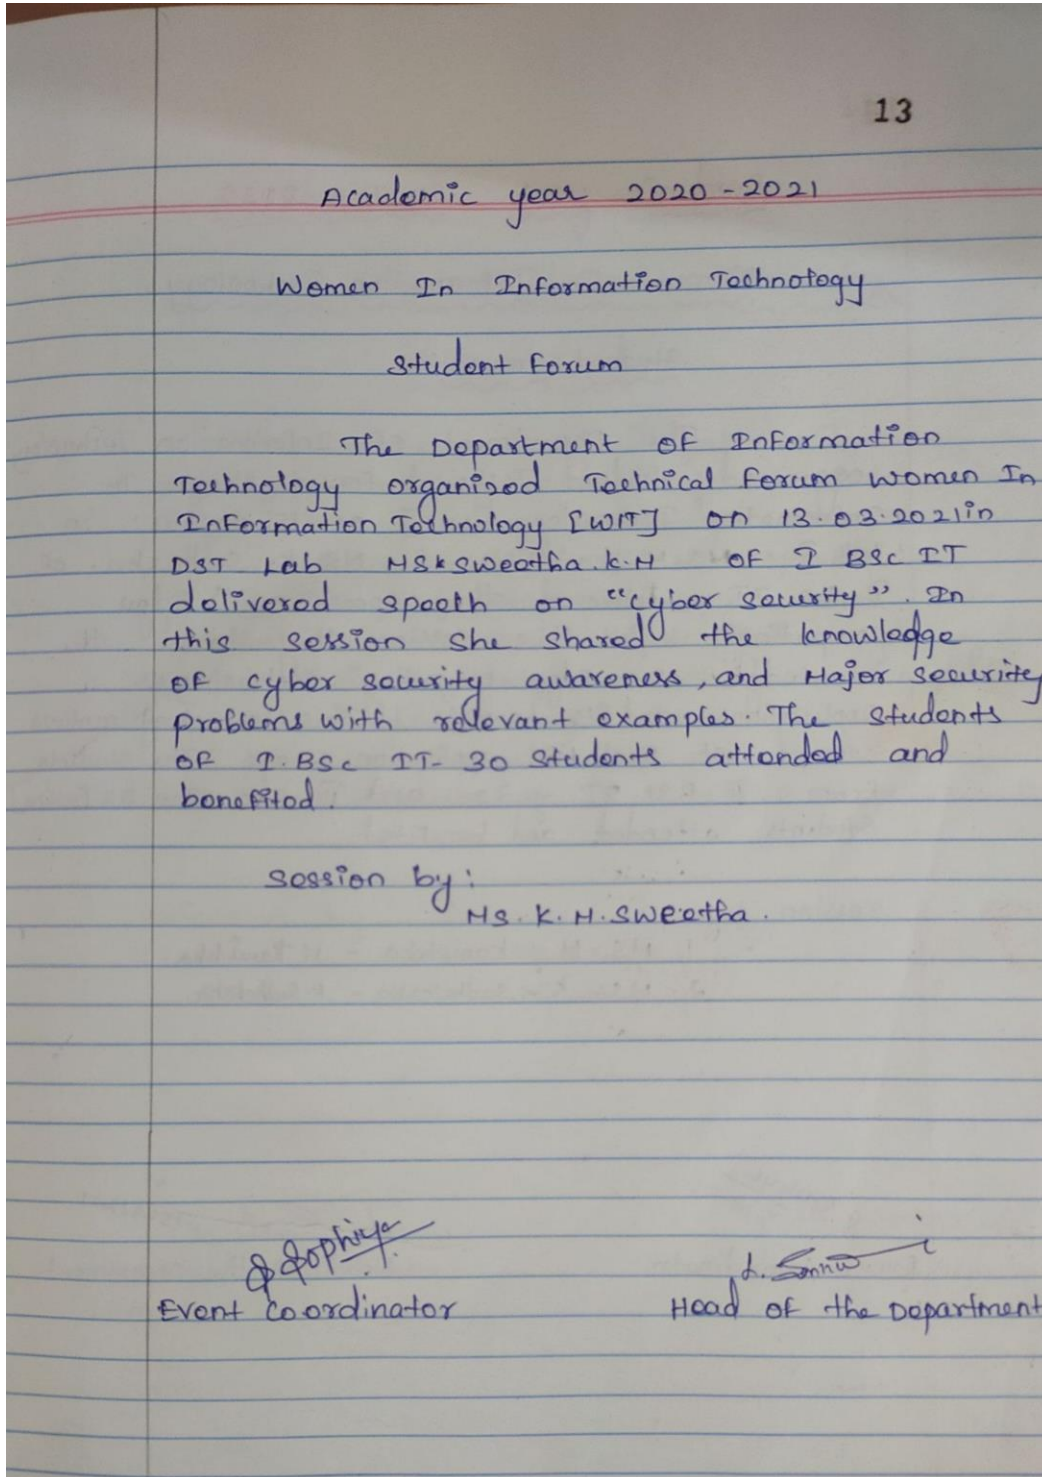 13
Academic year 2020-2021
Women In Information Technology
Student Forum
The Department of Information
Technology organised Technical Forum Women In
Information Technology [WIT] on 13.03.2021 in
DST Lab Ms K Sweatha.K.M of I BSc IT
delivered speech on "cyber security". In
this session she shared the knowledge
of cyber security awareness, and Major security
problems with relevant examples. The students
of I.BSc IT- 30 Students attended and
benefited.
Session by:
Ms. K.M. Sweatha.
Sophiya
Event Coordinator
Head of the Department